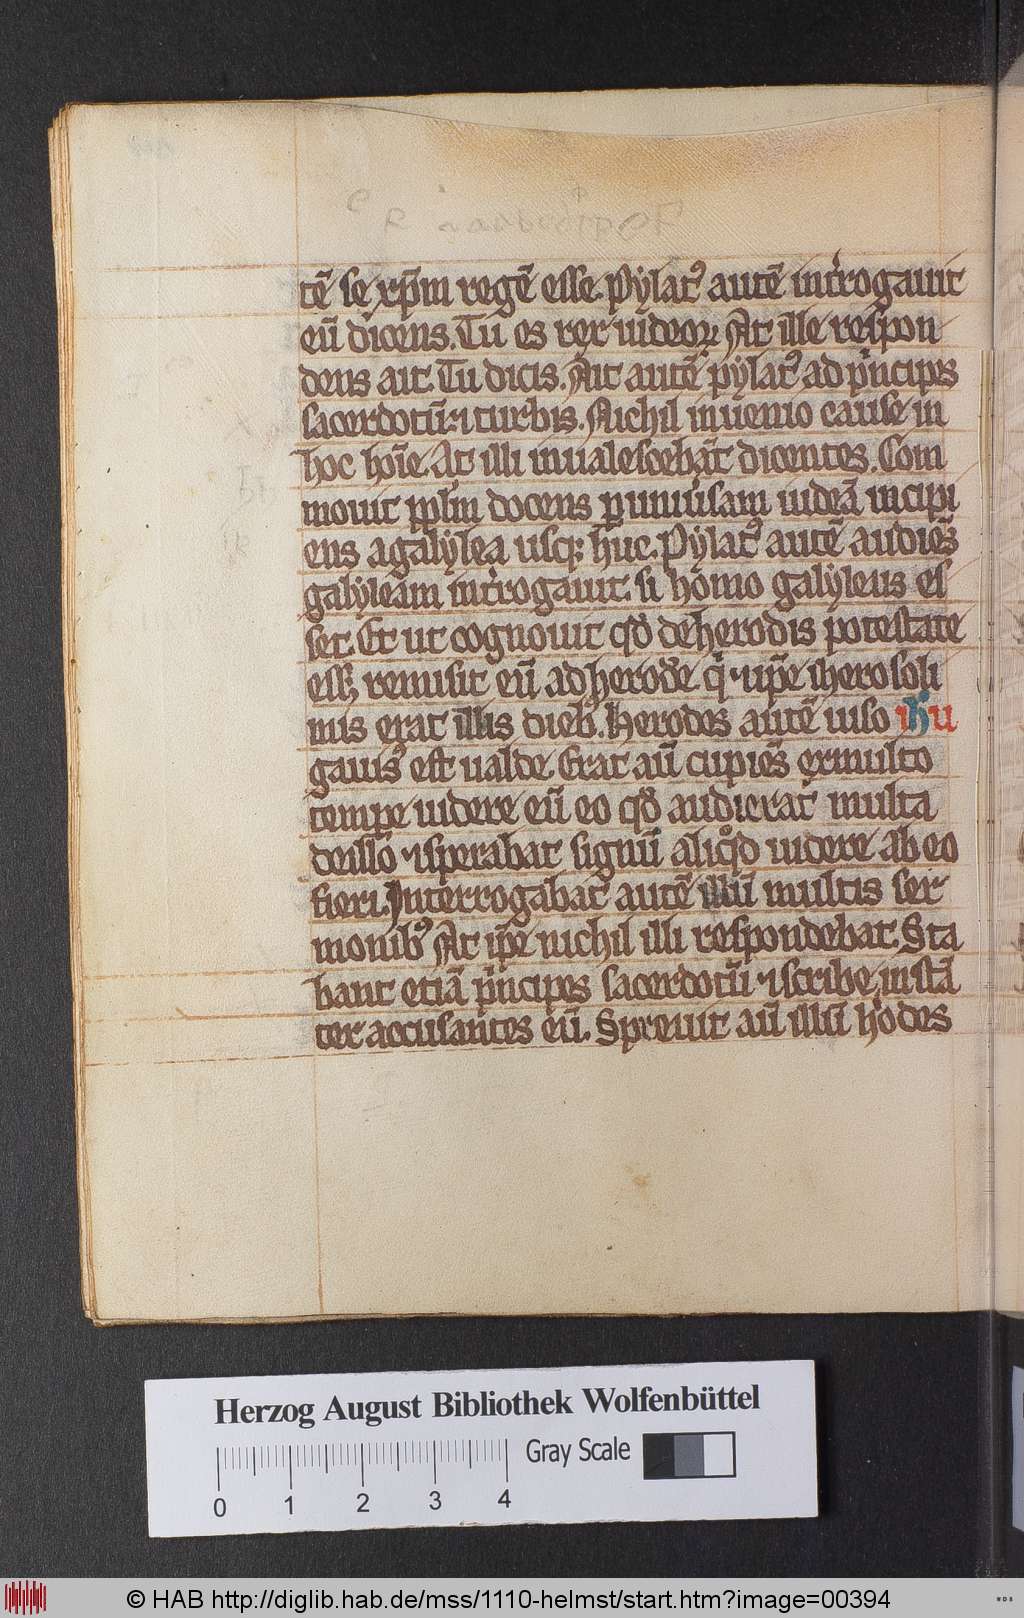 tē se xp̄m regē esse. Pylat᷒ autē int̾rogauit
eū dicens. Tu es rex iudeoꝝ. At ille respon
dens ait. Tu dicis. Ait autē pylat᷒ ad pͥncipes
sacerdotū ⁊ turbis. Nichil inuenio cause in
hoc hoīe. At illi inualescebāt dicentes. Com
mouit pplm̄ docens ꝑ uniūsam iudeā incipi
ens a galylea usqꝫ huc. Pylat᷒ autē audiēs
galyleam int̾rogauit. si homo galyleus es
set. Et ut cognouit qd̄ de herodis potestate
essꝫ remisit eū ad herodē qͥ ⁊ ip̄e iherosoli
mis erat illis dieb᷒. Herodes autē uiso ihu
gauis᷒ est ualde. Erat aū cupiēs ex multo
tempe uidere eū eo qd̄ audierat multa
de illo ⁊ sperabat signū aliqͦd uidere ab eo
fieri. Interrogabat autē illū multis ser
monib᷒ At ip̄e nichil illi respondebat. Sta
bant etiā pͥncipes sacerdotū ⁊ scribe instā
ter accusantes eū. Spreuit aū illū h̾odes
Herzog August Bibliothek Wolfenbüttel
Gray Scale
0 1 2 3 4
© HAB http://diglib.hab.de/mss/1110-helmst/start.htm?image=00394